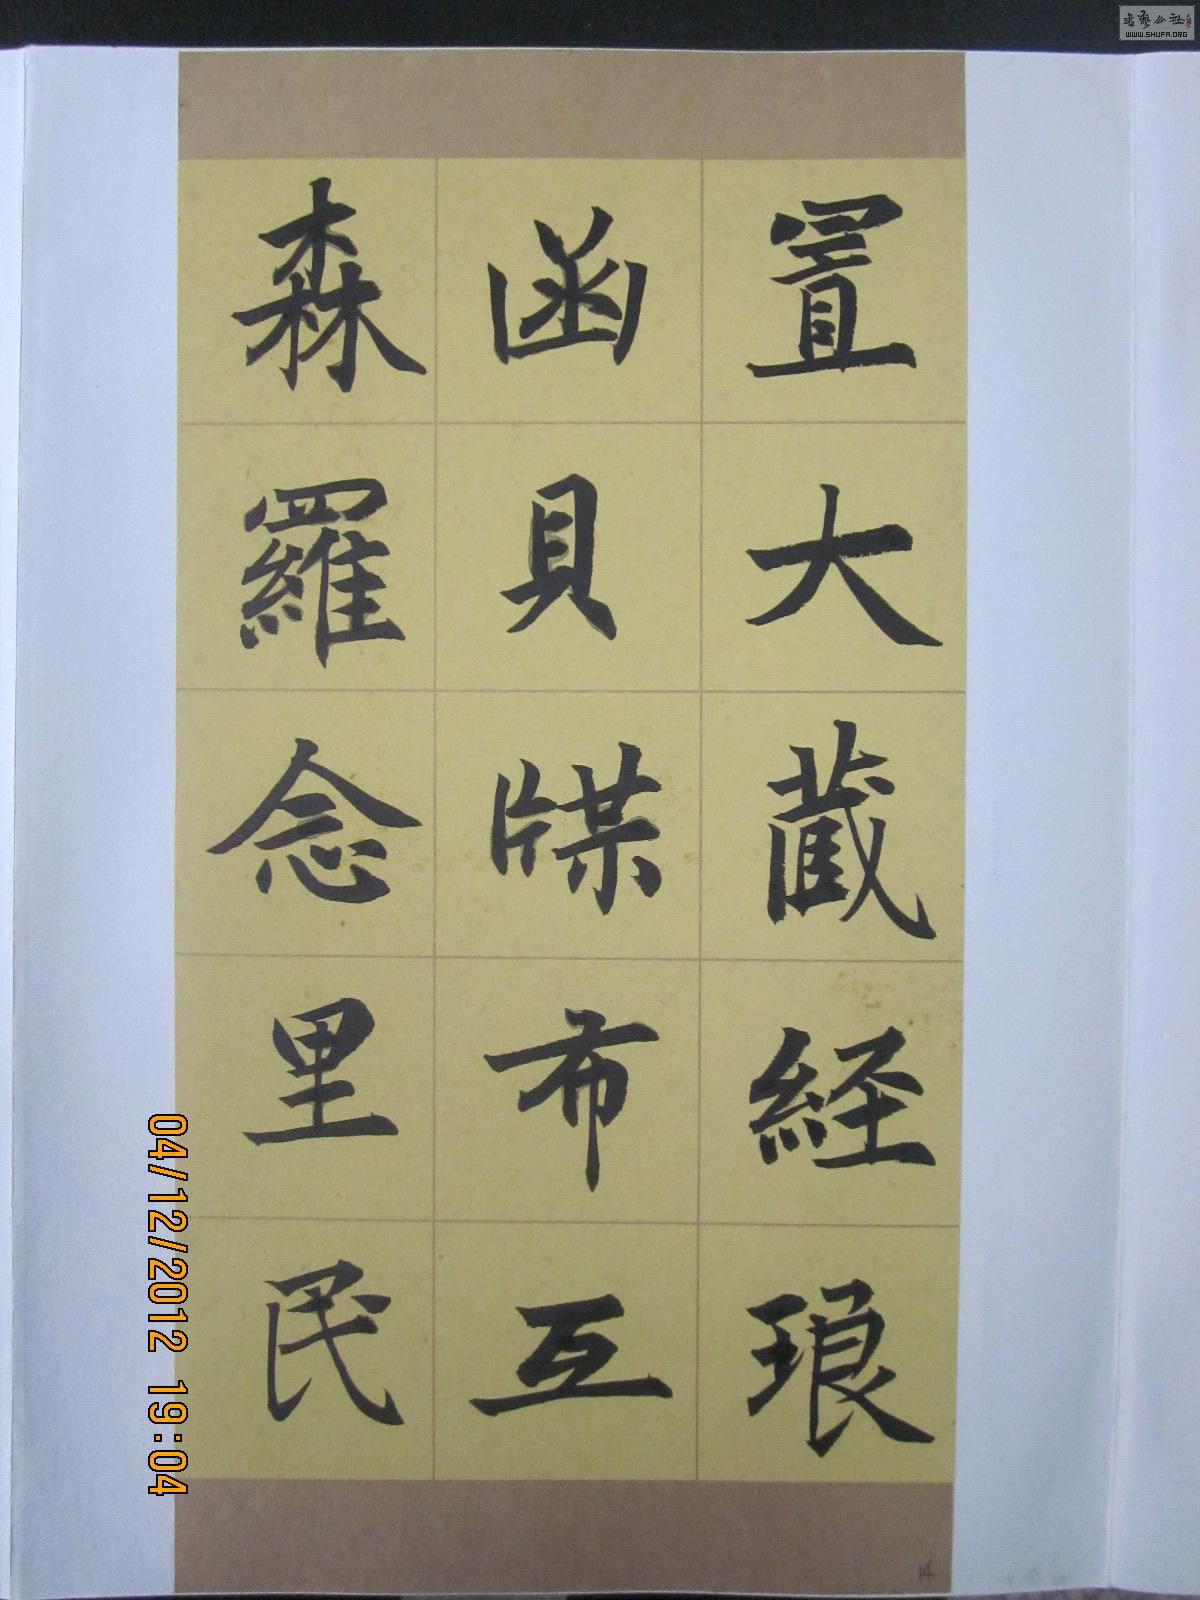 置大藏経琅
函貝牒布互
森羅念里民
04/12/2012 19:04
书艺公社
WWW.SHUFA.ORG